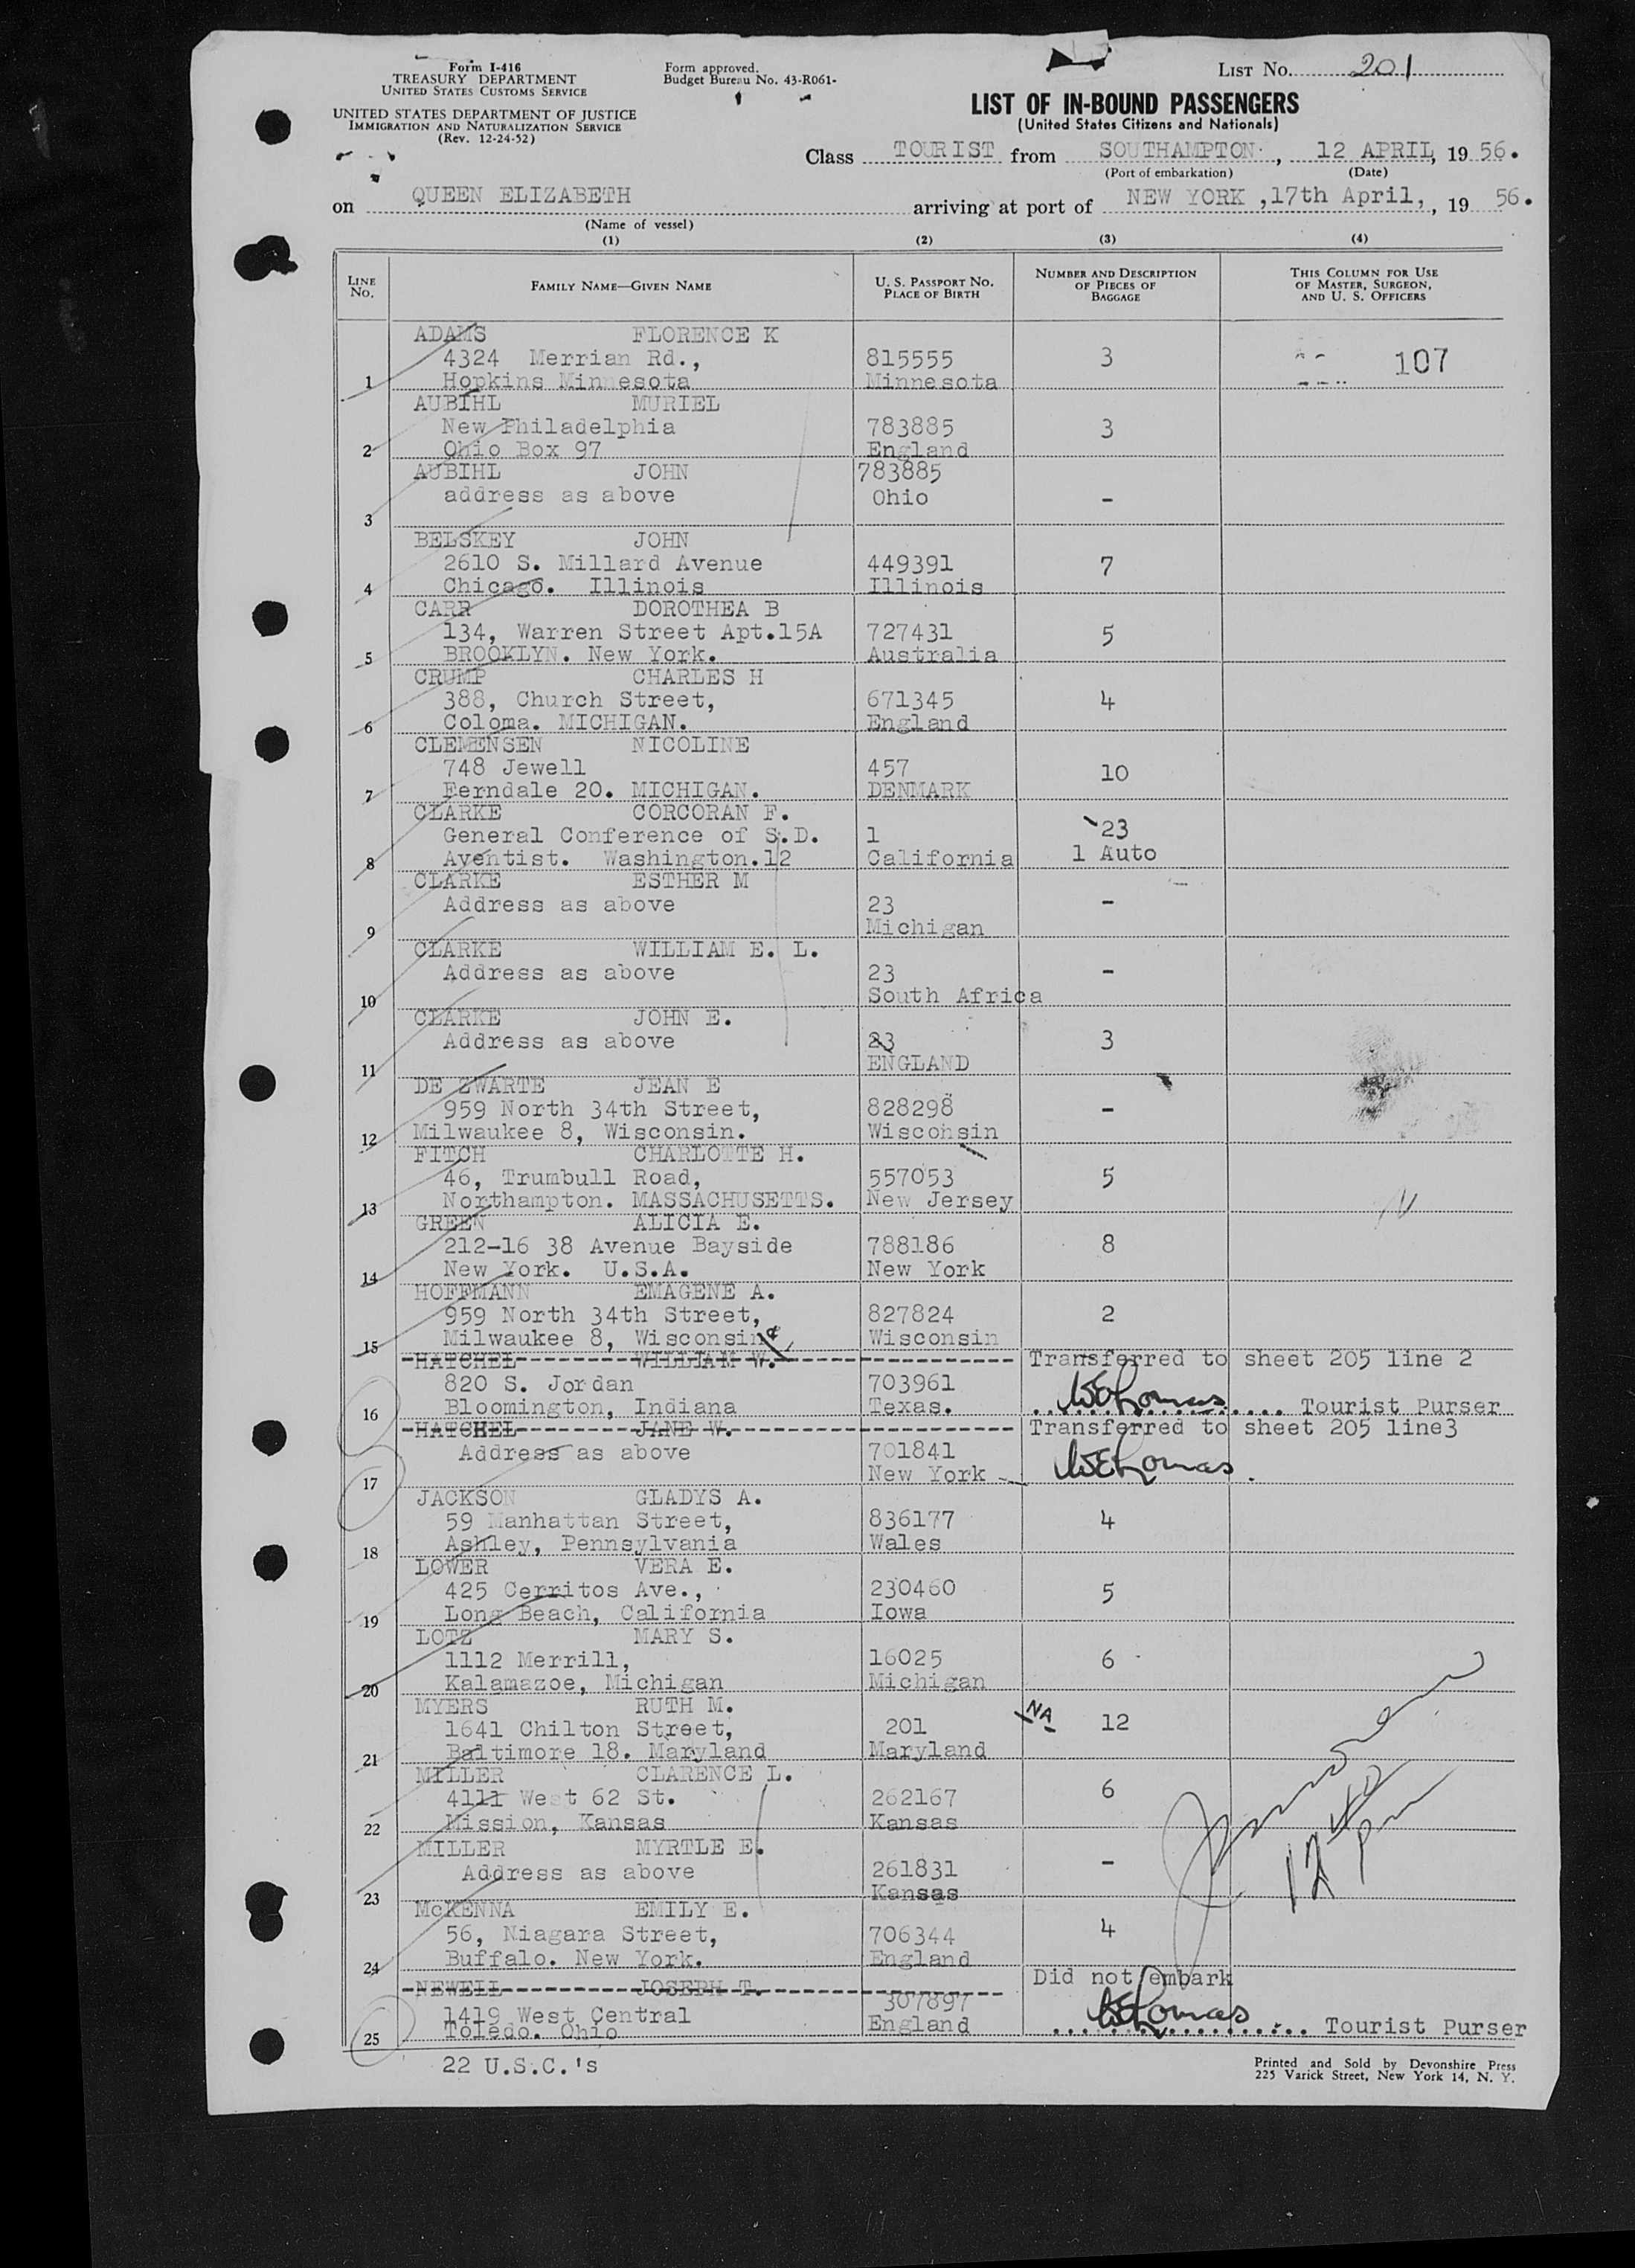 Form I-416
TREASURY DEPARTMENT
UNITED STATES CUSTOMS SERVICE
UNITED STATES DEPARTMENT OF JUSTICE
IMMIGRATION AND NATURALIZATION SERVICE
(Rev. 12-24-52)
Form approved.
Budget Bureau No. 43-R061-
LIST No. 201
LIST OF IN-BOUND PASSENGERS
(United States Citizens and Nationals)
Class TOURIST from SOUTHAMPTON, 12 APRIL, 19 56.
(Port of embarkation) (Date)
on QUEEN ELIZABETH arriving at port of NEW YORK, 17th April, , 19 56.
(Name of vessel)
(1) (2) (3) (4)
LINE No. FAMILY NAME—GIVEN NAME U. S. PASSPORT No. PLACE OF BIRTH NUMBER AND DESCRIPTION OF PIECES OF BAGGAGE THIS COLUMN FOR USE OF MASTER, SURGEON, AND U. S. OFFICERS
ADAMS FLORENCE K
4324 Merrian Rd., 815555 3 107
1 Hopkins Minnesota Minnesota
AUBIHL MURIEL
New Philadelphia 783885 3
2 Ohio Box 97 England
AUBIHL JOHN 783885
address as above Ohio -
3
BELSKEY JOHN
2610 S. Millard Avenue 449391 7
4 Chicago. Illinois Illinois
CARR DOROTHEA B
134, Warren Street Apt.15A 727431 5
5 BROOKLYN. New York. Australia
CRUMP CHARLES H
388, Church Street, 671345 4
6 Coloma. MICHIGAN. England
CLEMENSEN NICOLINE
748 Jewell 457 10
7 Ferndale 20. MICHIGAN. DENMARK
CLARKE CORCORAN F. 23
General Conference of S.D. 1
8 Aventist. Washington.12 California 1 Auto
CLARKE ESTHER M
Address as above 23 -
9 Michigan
CLARKE WILLIAM E. L.
Address as above 23 -
10 South Africa
CLARKE JOHN E.
Address as above 23 3
11 ENGLAND
DE ZWARTE JEAN E
959 North 34th Street, 828298 -
12 Milwaukee 8, Wisconsin. Wisconsin
FITCH CHARLOTTE H.
46, Trumbull Road, 557053 5
13 Northampton. MASSACHUSETTS. New Jersey
GREEN ALICIA E.
212-16 38 Avenue Bayside 788186 8
14 New York. U.S.A. New York
HOFFMANN EMAGENE A.
959 North 34th Street, 827824 2
15 Milwaukee 8, Wisconsin Wisconsin
HATCHEL WILLIAM W. Transferred to sheet 205 line 2
820 S. Jordan 703961 WEThomas
16 Bloomington, Indiana Texas. Tourist Purser
HATCHEL JANE W. Transferred to sheet 205 line3
Address as above 701841 WEThomas
17 New York
JACKSON GLADYS A.
59 Manhattan Street, 836177 4
18 Ashley, Pennsylvania Wales
LOWER VERA E.
425 Cerritos Ave., 230460 5
19 Long Beach, California Iowa
LOTZ MARY S.
1112 Merrill, 16025 6
20 Kalamazoe, Michigan Michigan
MYERS RUTH M. NA
1641 Chilton Street, 201 12
21 Baltimore 18. Maryland Maryland
MILLER CLARENCE L.
4111 West 62 St. 262167 6
22 Mission, Kansas Kansas
MILLER MYRTLE E.
Address as above 261831 -
23 Kansas
12 40 pm
McKENNA EMILY E.
56, Niagara Street, 706344 4
24 Buffalo. New York. England
NEWELL JOSEPH T. Did not embark
1419 West Central 307897 WEThomas
25 Toledo. Ohio England Tourist Purser
22 U.S.C.'s
Printed and Sold by Devonshire Press
225 Varick Street, New York 14, N. Y.